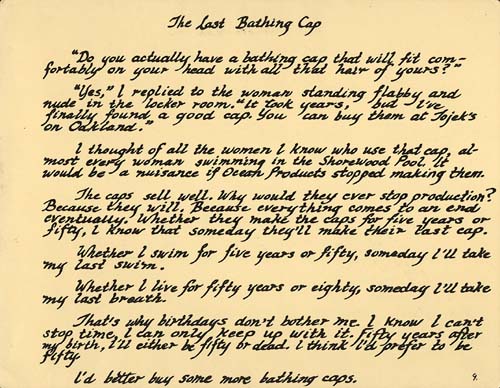 The Last Bathing Cap
"Do you actually have a bathing cap that will fit com-
fortably on your head with all that hair of yours?"
"Yes," I replied to the woman standing flabby and
nude in the locker room. "It took years, but I've
finally found a good cap. You can buy them at Tojek's
on Oakland."
I thought of all the women I know who use that cap, al-
most every woman swimming in the Shorewood Pool. It
would be a nuisance if Ocean Products stopped making them.
The caps sell well. Why would they ever stop production?
Because they will. Because everything comes to an end
eventually. Whether they make the caps for five years or
fifty, I know that someday they'll make their last cap.
Whether I swim for five years or fifty, someday I'll take
my last swim.
Whether I live for fifty years or eighty, someday I'll take
my last breath.
That's why birthdays don't bother me. I know I can't
stop time. I can only keep up with it. Fifty years after
my birth, I'll either be fifty or dead. I think I'd prefer to be
fifty.
I'd better buy some more bathing caps.
9.